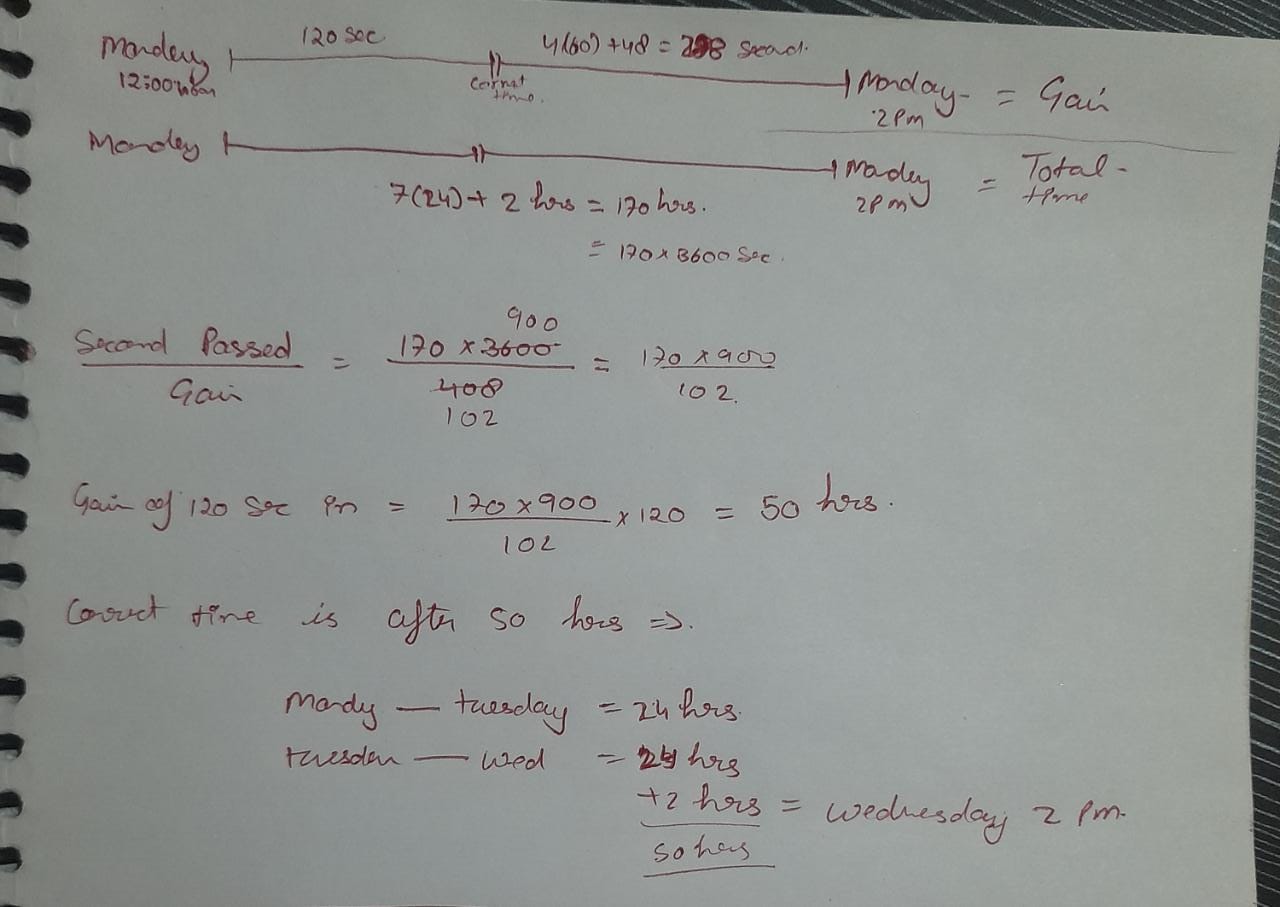 Monday 120 sec 4(60)+48 = 288 second.
12:00 noon correct time. Monday 2pm = Gain
Monday Monday 2pm = Total time
7(24)+ 2 hrs = 170 hrs.
= 170 x 3600 Sec.
900
Second Passed = 170 x 3600 = 170 x 900
Gain 408 102.
102
Gain of 120 Sec in = 170 x 900 x 120 = 50 hrs.
102
Correct time is after 50 hrs =>.
Mondy — tuesday = 24 hrs.
tuesday — wed = 24 hrs
+2 hrs = wednesday 2 pm.
50 hrs